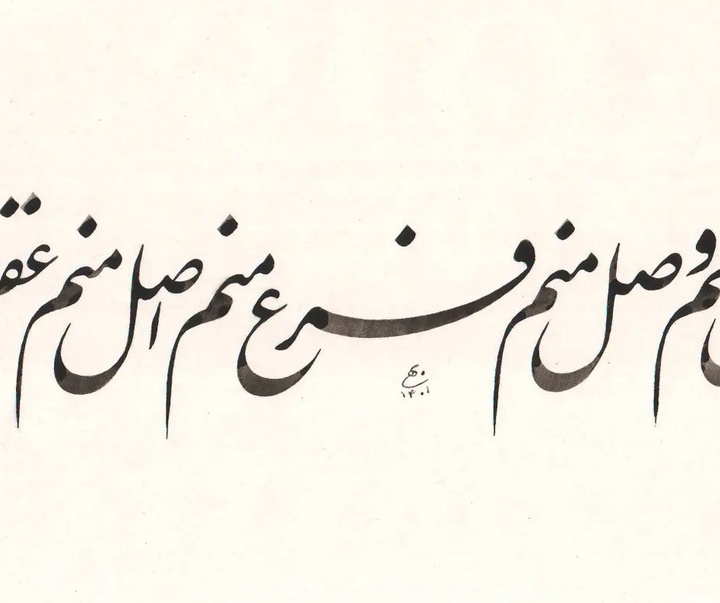 وصل منم فرع منم اصل منم
۱۴۰۱